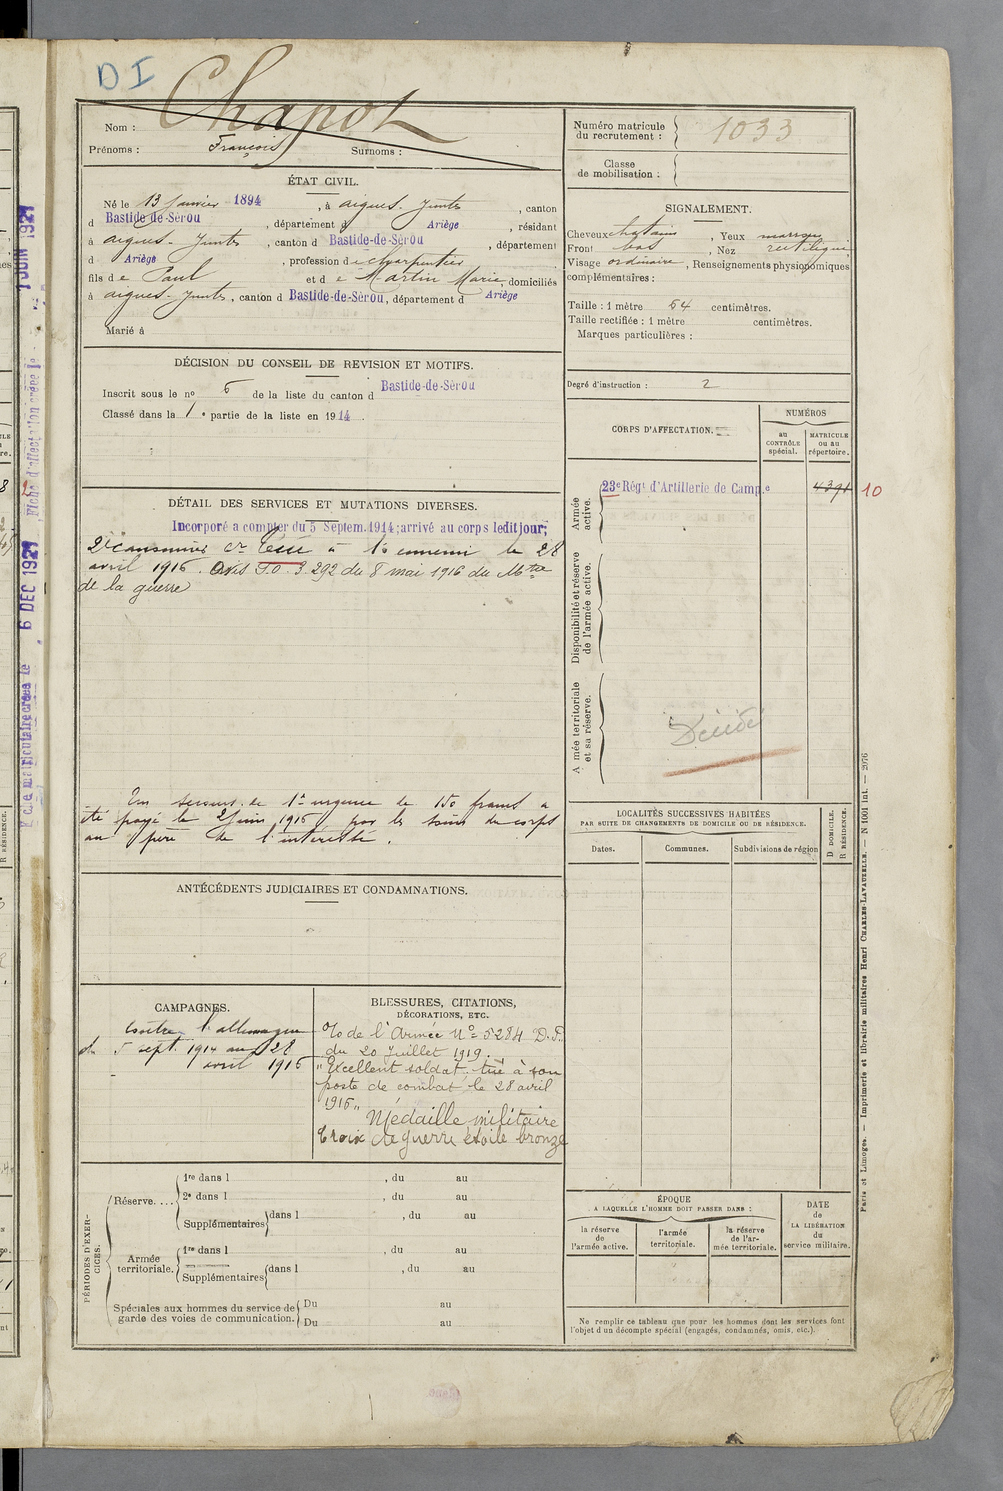 DI
Chapot
Nom :
Prénoms : François Surnoms :
ÉTAT CIVIL.
Né le 13 Janvier 1894, à Aigues-Juntes, canton
d Bastide-de-Sérou, département d Ariège, résidant
à Aigues-Juntes, canton d Bastide-de-Sérou, département
d Ariège, profession de charpentier
fils de Paul et de Martin Marie, domiciliés
à Aigues-Juntes, canton d Bastide-de-Sérou, département d Ariège
Marié à
DÉCISION DU CONSEIL DE REVISION ET MOTIFS.
Inscrit sous le no 6 de la liste du canton d Bastide-de-Sérou
Classé dans la 1e partie de la liste en 1914.
DÉTAIL DES SERVICES ET MUTATIONS DIVERSES.
Incorporé à compter du 5 Septem. 1914; arrivé au corps ledit jour;
2e canonnier Tué à l'ennemi le 28
avril 1916. Avis 3.292 du 8 mai 1916 du Mtre
de la guerre
Un secours de 1re urgence de 150 francs a
été payé le 2 juin 1916 par les soins du corps
au père de l'intéressé.
ANTÉCÉDENTS JUDICIAIRES ET CONDAMNATIONS.
CAMPAGNES.
Contre l'allemagne
du 5 sept. 1914 au 28
avril 1916
BLESSURES, CITATIONS,
DÉCORATIONS, ETC.
O/o de l'Armée No 5284 D.
du 20 Juillet 1919.
"Excellent soldat tué à son
poste de combat le 28 avril
1916"
Médaille militaire
Croix de guerre étoile bronze
PÉRIODES D'EXERCICES.
Réserve....
1re dans l , du au
2e dans l , du au
Supplémentaires dans l , du au
Armée
territoriale.
1re dans l , du au
Supplémentaires dans l , du au
Spéciales aux hommes du service de
garde des voies de communication.
Du au
Du au
Numéro matricule
du recrutement : 1033
Classe
de mobilisation :
SIGNALEMENT.
Cheveux chatains, Yeux marron
Front bas, Nez rectiligne
Visage ordinaire, Renseignements physionomiques
complémentaires :
Taille : 1 mètre 64 centimètres.
Taille rectifiée : 1 mètre centimètres.
Marques particulières :
Degré d'instruction : 2
CORPS D'AFFECTATION.
NUMÉROS
au
CONTRÔLE
spécial.
MATRICULE
ou au
répertoire.
Armée
active.
23e Régt d'Artillerie de Campe 4391 10
Disponibilité et réserve
de l'armée active.
A mée territoriale
et sa réserve.
Décédé
LOCALITÉS SUCCESSIVES HABITÉES
PAR SUITE DE CHANGEMENTS DE DOMICILE OU DE RÉSIDENCE.
Dates.
Communes.
Subdivisions de région
D DOMICILE.
R RÉSIDENCE.
ÉPOQUE
A LAQUELLE L'HOMME DOIT PASSER DANS :
la réserve
de
l'armée active.
l'armée
territoriale.
la réserve
de l'ar-
mée territoriale.
DATE
de
LA LIBÉRATION
du
service militaire.
Ne remplir ce tableau que pour les hommes dont les services font
l'objet d'un décompte spécial (engagés, condamnés, omis, etc.).
Paris et Limoges. — Imprimerie et librairie militaires Henri CHARLES-LAVAUZELLE. — N 1001 int. — 2076
Fiche d'affectation créée le 1 JUIN 1921
6 DEC 1921
R RÉSIDENCE.